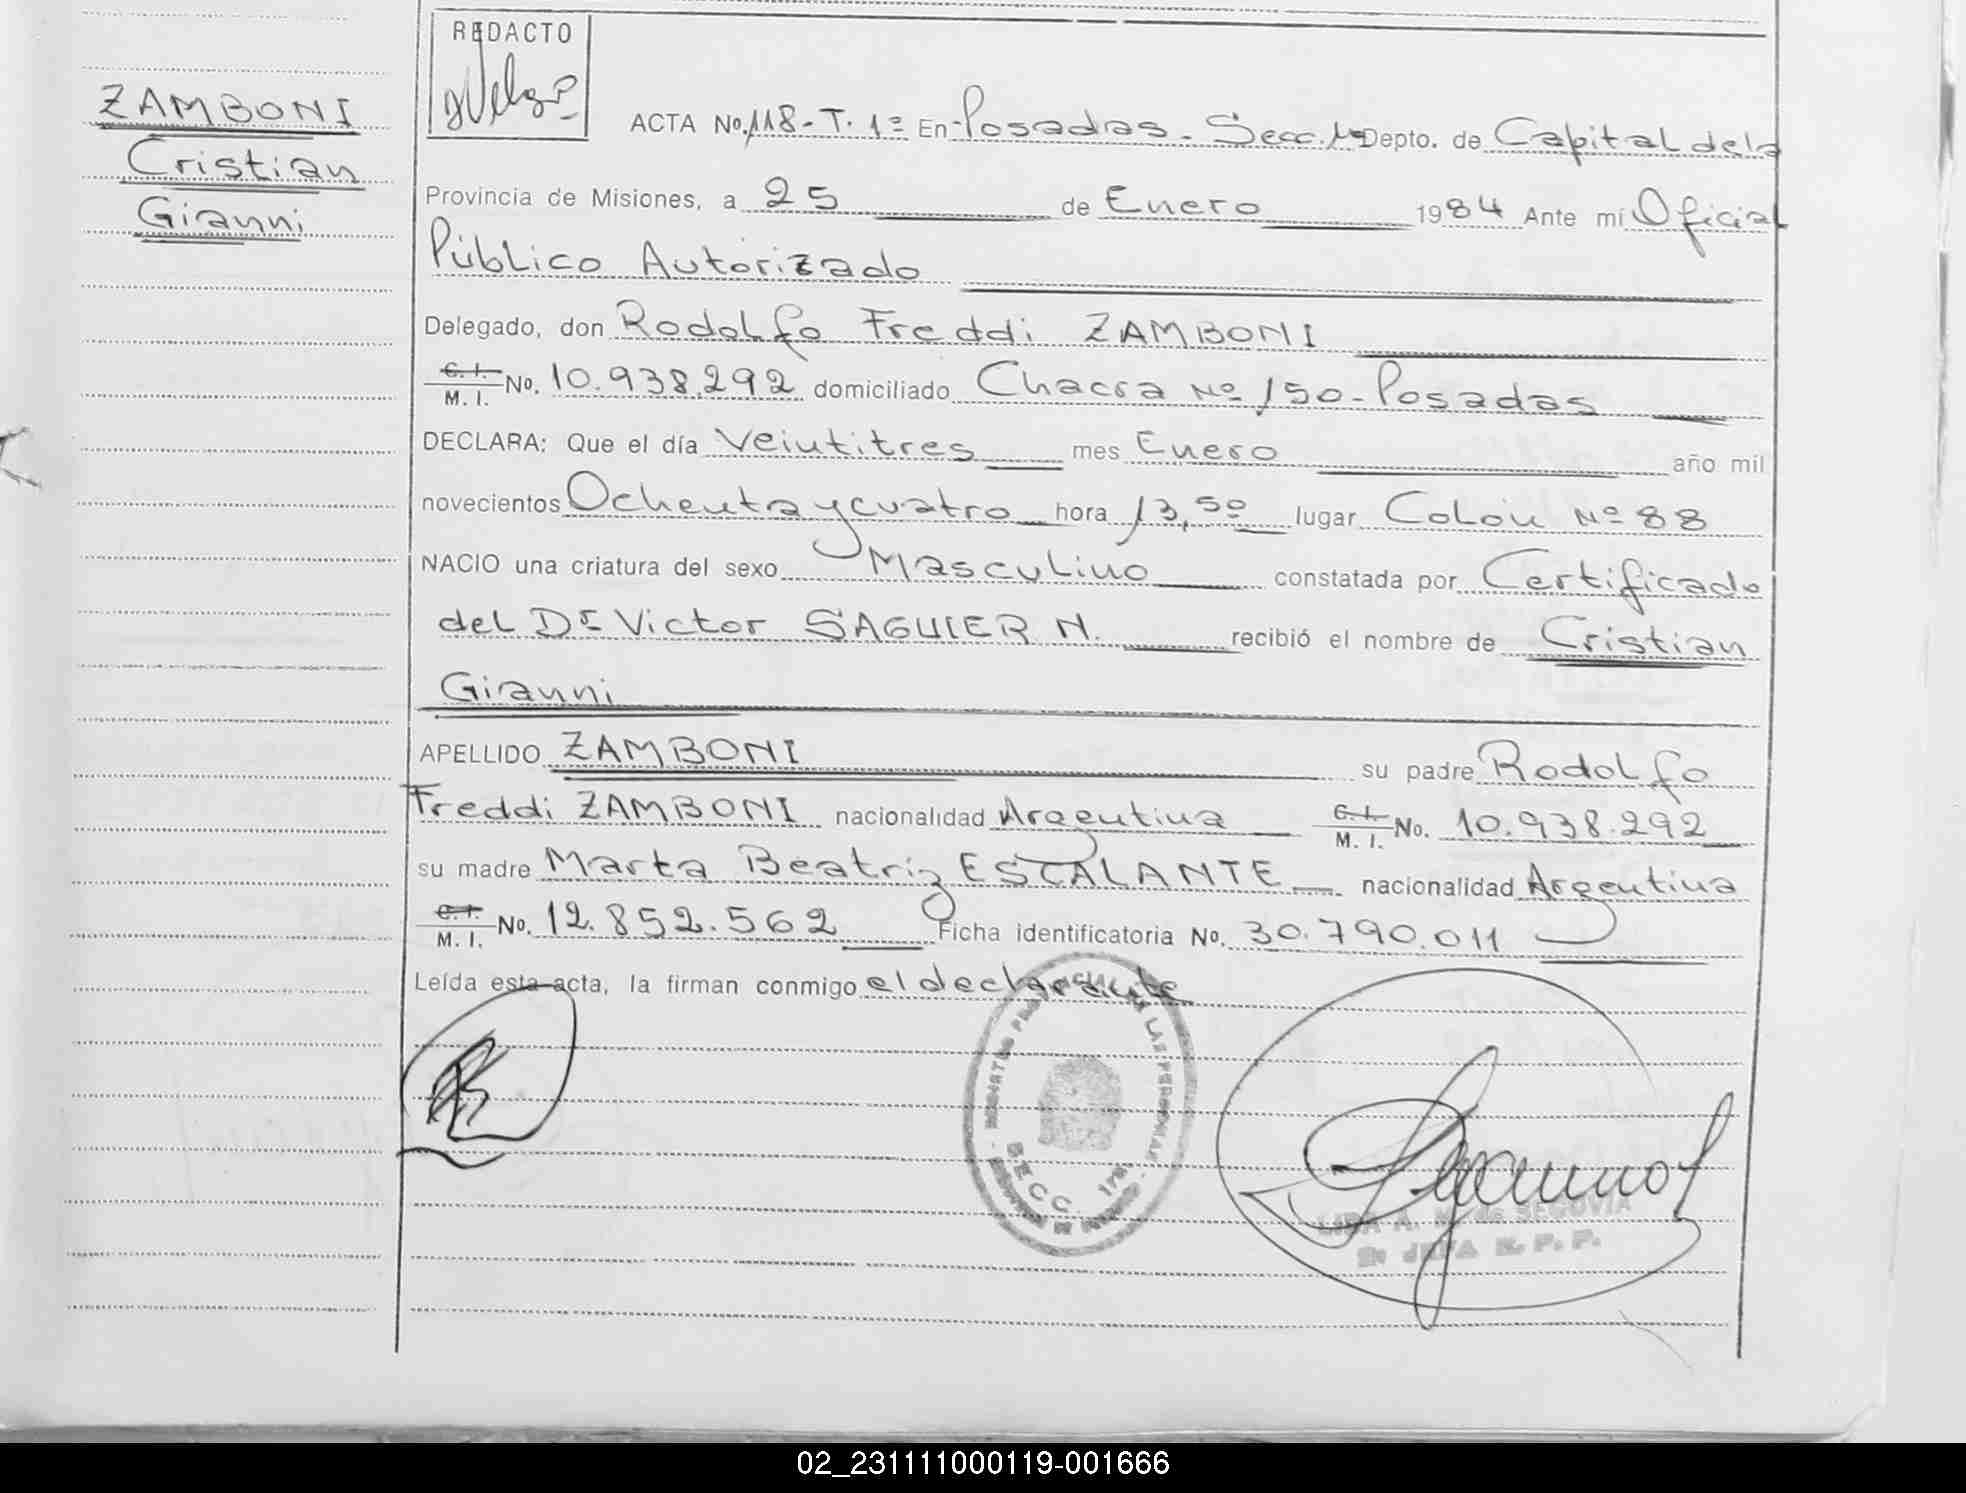 REDACTO
ZAMBONI
Cristian
Gianni
ACTA No. 118-T. 1º En Posadas-Secc. 1ª Depto. de Capital de la
Provincia de Misiones, a 25 de Enero 1984 Ante mí Oficial
Público Autorizado
Delegado, don Rodolfo Freddi ZAMBONI
C. I.
M. I. No. 10.938.292 domiciliado Chacra Nº 150-Posadas
DECLARA: Que el día Veintitres mes Enero año mil
novecientos Ochenta y cuatro hora 13,50 lugar Colón Nº 88
NACIO una criatura del sexo Masculino constatada por Certificado
del Dr Victor SAGUIER N. recibió el nombre de Cristian
Gianni
APELLIDO ZAMBONI su padre Rodolfo
Freddi ZAMBONI nacionalidad Argentina C. I. M. I. No. 10.938.292
su madre Marta Beatriz ESCALANTE nacionalidad Argentina
C. I. M. I. No. 12.852.562 Ficha identificatoria No. 30.790.011
Leída esta acta, la firman conmigo el declarante
REGISTRO PROVINCIAL DE LAS PERSONAS
SECC. 1ª
A. M. de SEGOVIA
2º JEFA R. P. P.
02_231111000119-001666